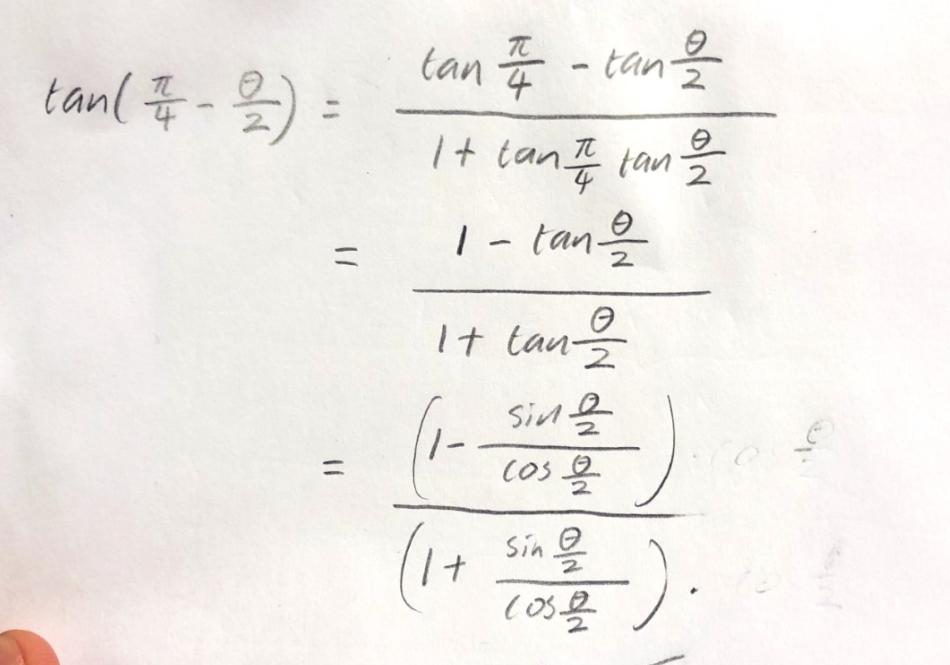 tan(π/4 - θ/2) = (tan π/4 - tan θ/2) / (1 + tan π/4 tan θ/2)
= (1 - tan θ/2) / (1 + tan θ/2)
= (1 - (sin θ/2)/(cos θ/2)) / (1 + (sin θ/2)/(cos θ/2)) .